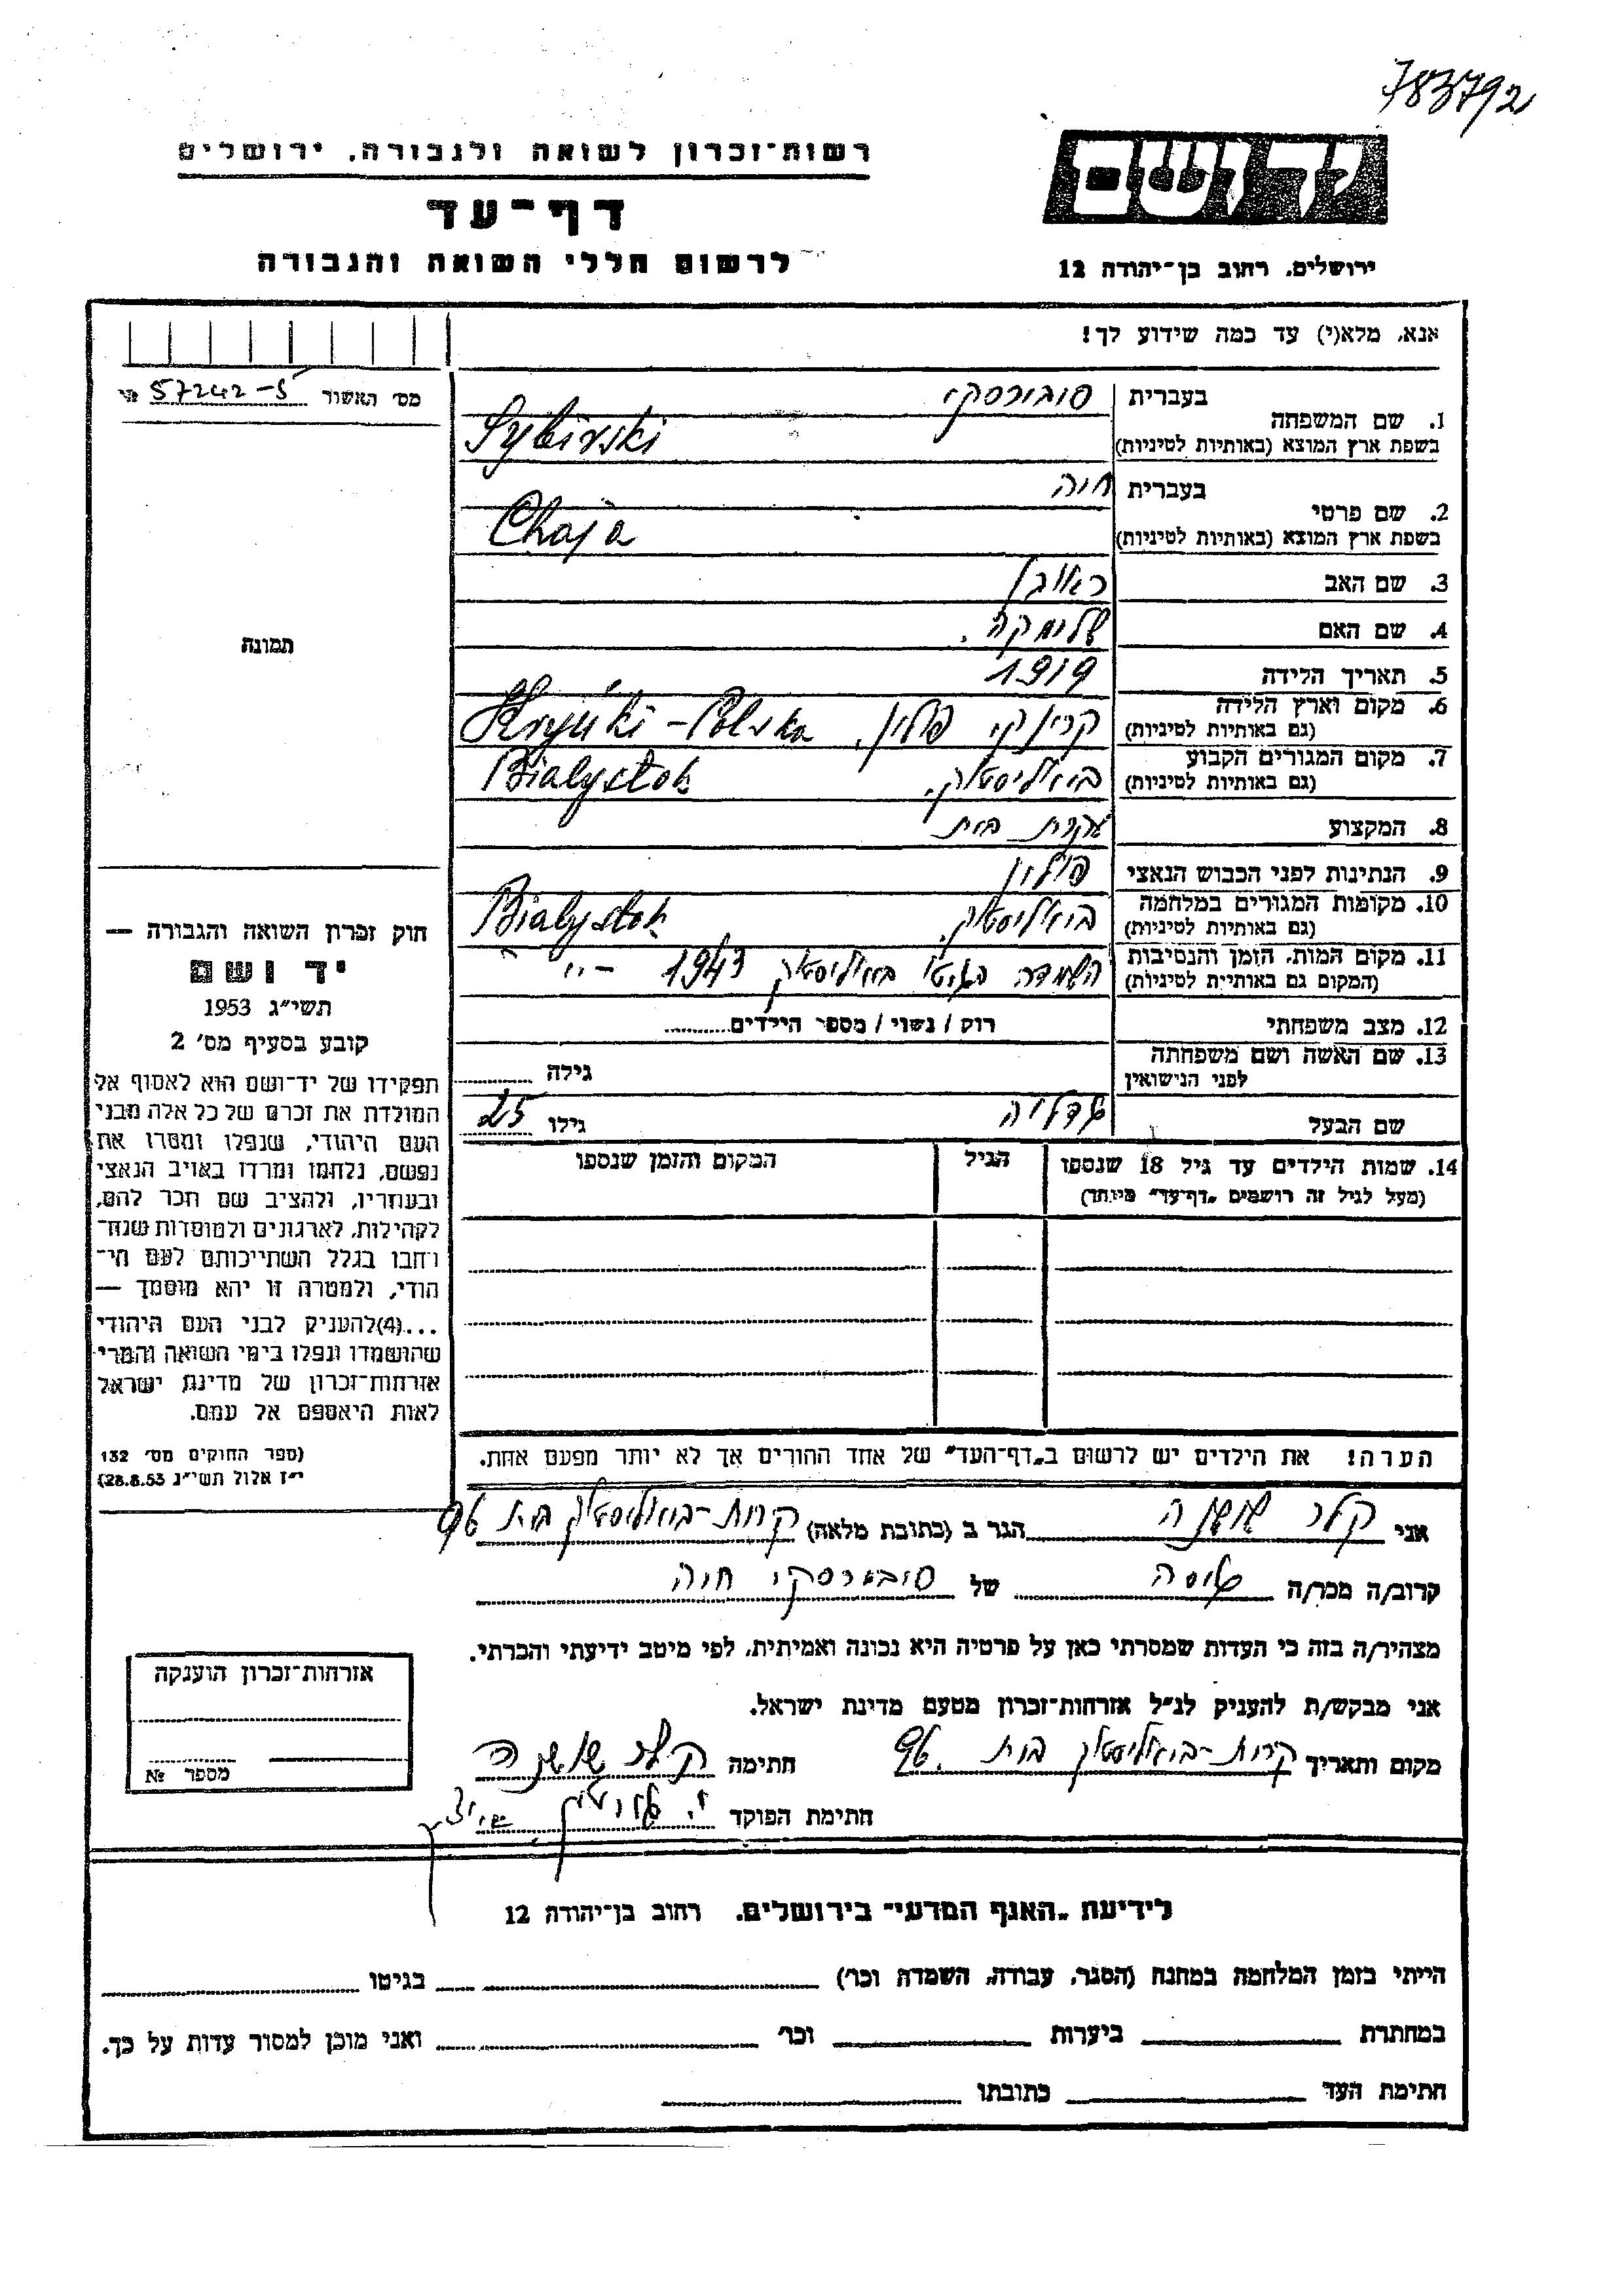 783792
רשות־זכרון לשואה ולגבורה, ירושלים
יד ושם
דף־עד
לרשום חללי השואה והגבורה
ירושלים, רחוב בן־יהודה 12
אנא, מלא(י) עד כמה שידוע לך!
מס׳ האשור № 57242-5
תמונה
1. שם המשפחה
בעברית סובירסקי
בשפת ארץ המוצא (באותיות לטיניות) Sybirski
2. שם פרטי
בעברית חיה
בשפת ארץ המוצא (באותיות לטיניות) Chaja
3. שם האב ראובן
4. שם האם שלומקה.
5. תאריך הלידה 1919
6. מקום וארץ הלידה קרינקי פולין. Kryńki – Polska
(גם באותיות לטיניות)
7. מקום המגורים הקבוע ביאליסטוק. Bialystok
(גם באותיות לטיניות)
8. המקצוע עקרת בית
9. הנתינות לפני הכבוש הנאצי פולין
10. מקומות המגורים במלחמה ביאליסטוק. Bialystok
(גם באותיות לטיניות)
11. מקום המות, הזמן והנסיבות הושמדה בגיטו ביאליסטוק 1943
(המקום גם באותיות לטיניות)
12. מצב משפחתי רוק / נשוי / מספר הילדים
13. שם האשה ושם משפחתה
לפני הנישואין
גילה
שם הבעל גדליה גילו 25
14. שמות הילדים עד גיל 18 שנספו הגיל המקום והזמן שנספו
(מעל לגיל זה רושמים „דף־עד” מיוחד)
הערה! את הילדים יש לרשום ב„דף־העד” של אחד ההורים אך לא יותר מפעם אחת.
חוק זכרון השואה והגבורה —
יד ושם
תשי״ג 1953
קובע בסעיף מס׳ 2
תפקידו של יד־ושם הוא לאסוף אל
המולדת את זכרם של כל אלה מבני
העם היהודי, שנפלו ומסרו את
נפשם, נלחמו ומרדו באויב הנאצי
ובעוזריו, ולהציב שם וזכר להם,
לקהילות, לארגונים ולמוסדות שנח־
רבו בגלל השתייכותם לעם הי־
הודי, ולמטרה זו יהא מוסמך —
...(4)להעניק לבני העם היהודי
שהושמדו ונפלו בימי השואה והמרי
אזרחות־זכרון של מדינת ישראל
לאות היאספם אל עמם.
(ספר החוקים מס׳ 132
י״ז אלול תשי״ג 28.8.53)
אני קלר שושנה הגר ב (כתובת מלאה) קרית-ביאליסטוק בית 96
קרוב/ה מכר/ה גיסה של סובירסקי חיה
מצהיר/ה בזה כי העדות שמסרתי כאן על פרטיה היא נכונה ואמיתית, לפי מיטב ידיעתי והכרתי.
אני מבקש/ת להעניק לנ״ל אזרחות־זכרון מטעם מדינת ישראל.
מקום ותאריך קרית-ביאליסטוק בית 96. חתימה קלר שושנה
חתימת הפוקד
אזרחות־זכרון הוענקה
מספר №
לידיעת „האגף המדעי” בירושלים. רחוב בן־יהודה 12
הייתי בזמן המלחמה במחנה (הסגר, עבודה, השמדה וכו׳) בגיטו
במחתרת ביערות וכו׳ ואני מוכן למסור עדות על כך.
חתימת העד כתובתו